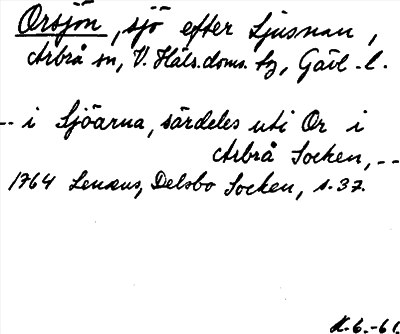 Orsjön, sjö efter Ljusnan,
Arbrå sn, V. Häls. doms. tg, Gävl. l.
-- i Sjöarna, särdeles uti Or i
Arbrå Socken, --
1764 Lenæus, Delsbo Socken, s. 37.
K. 6.-61.